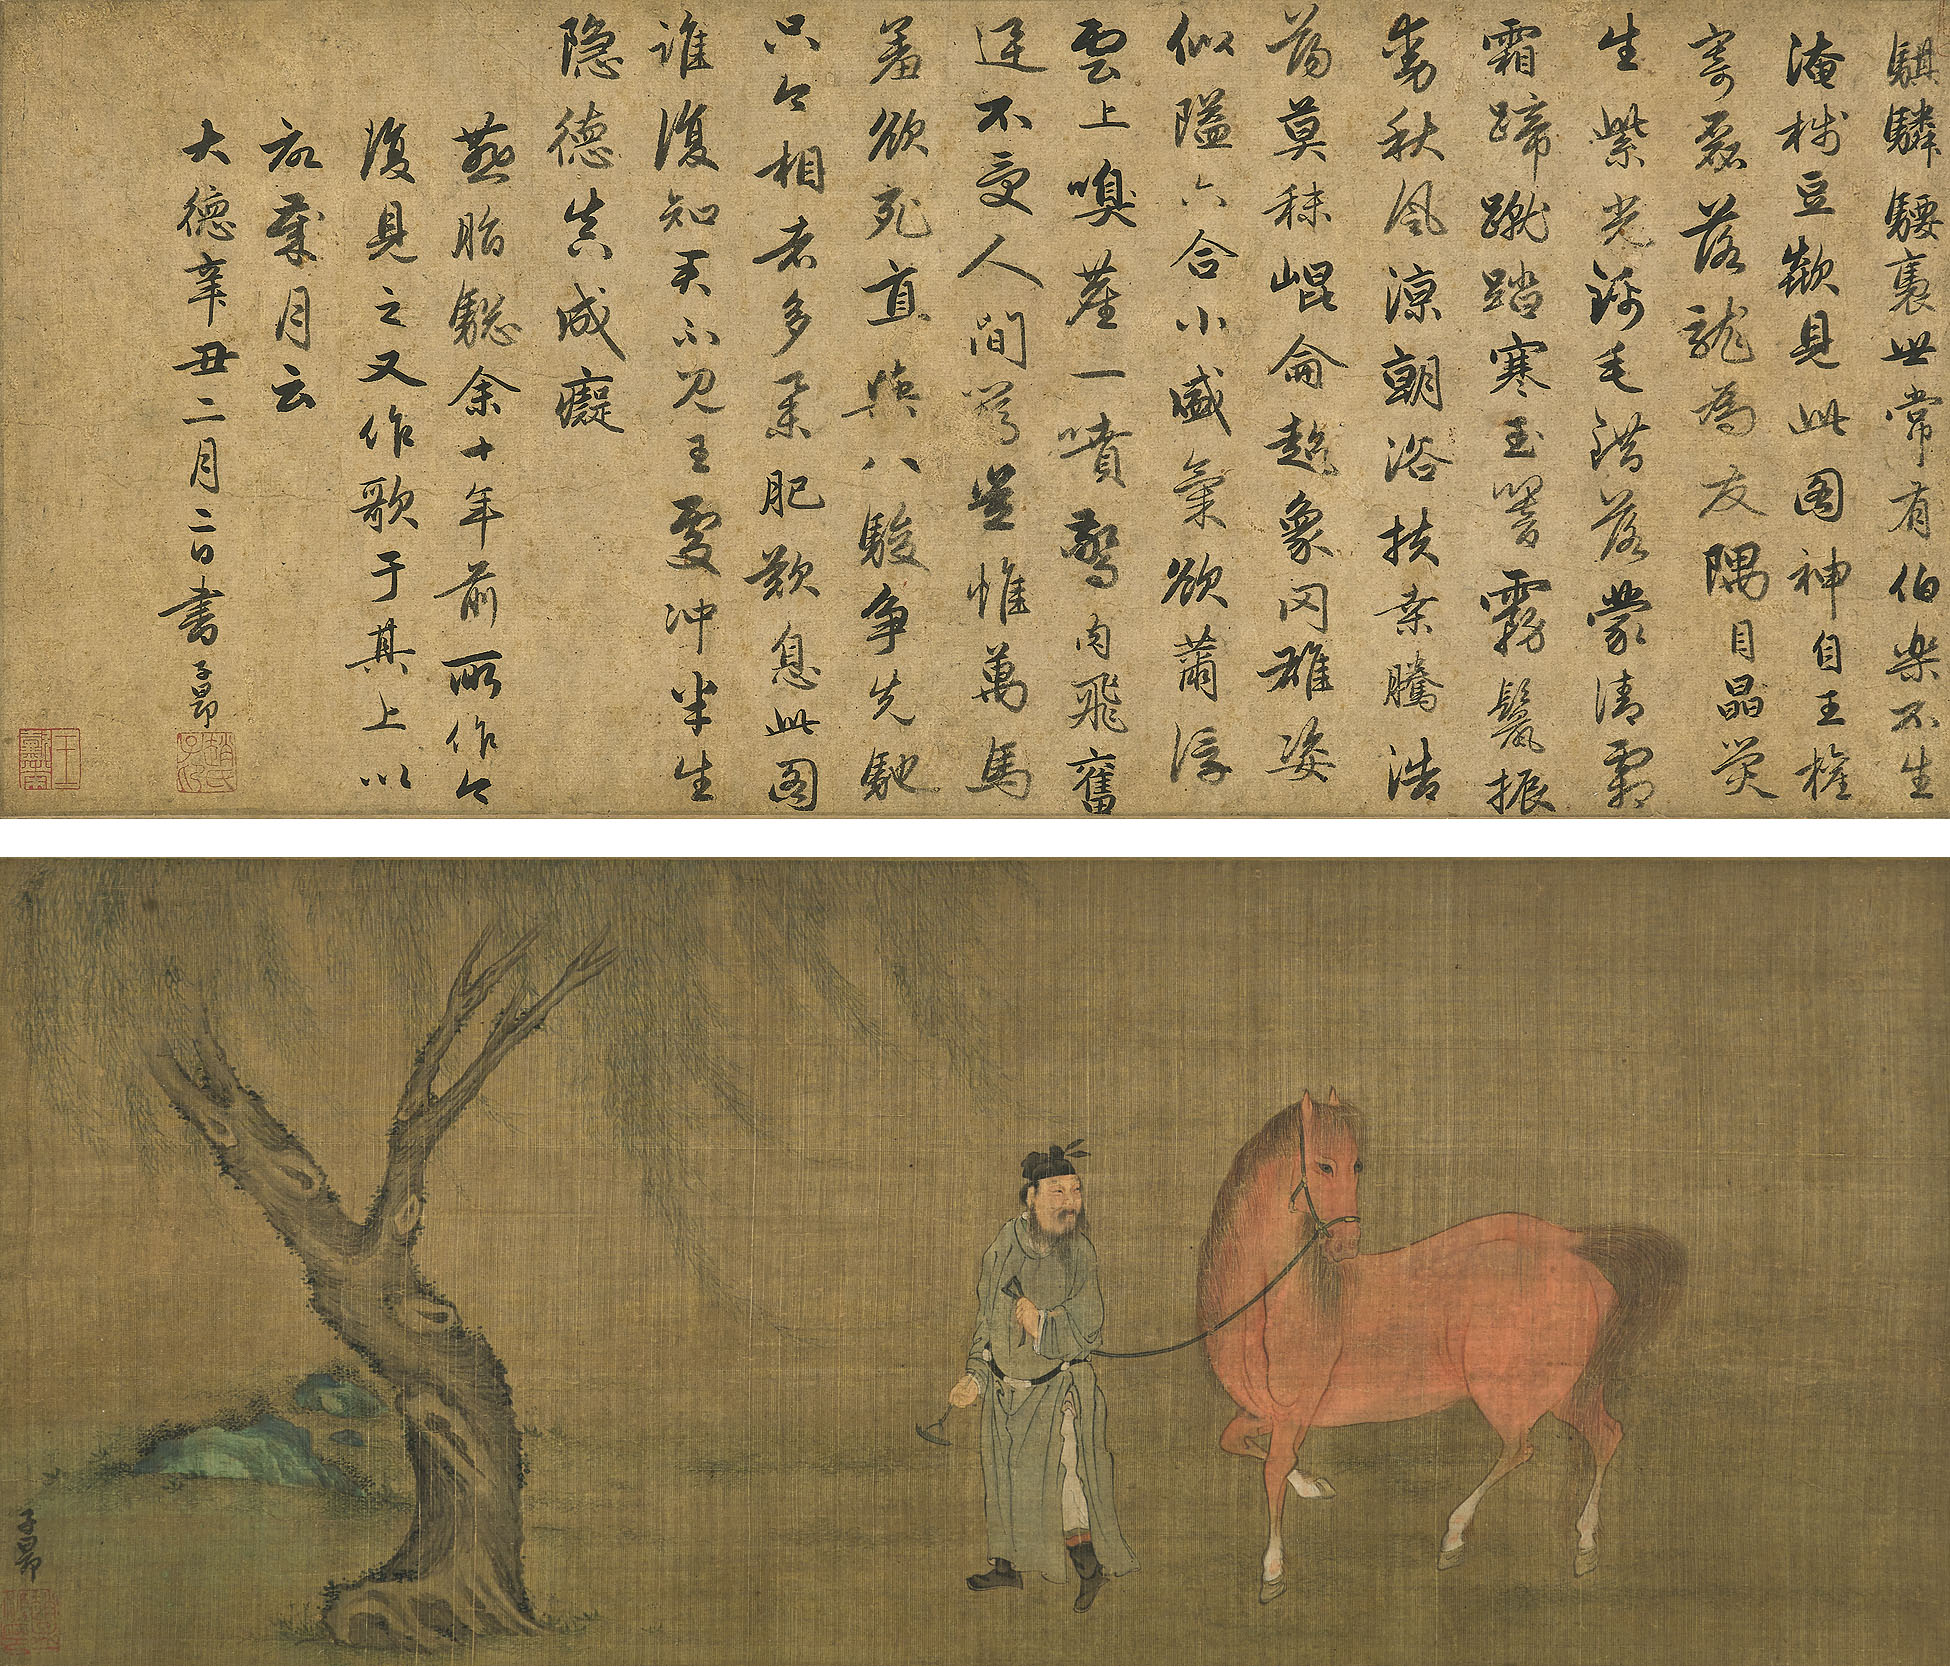 騏驎騕褭世常有伯樂不生
淹棧豆歘見此圖神自王權
奇磊落龍為友隅目晶熒
生紫光銖毛錯落蒙清霜
霜蹄蹴踏寒玉響霧鬣振
動秋風涼朝浴扶桑騰浩
蕩莫秣崐侖超象罔雄姿
似隘六合小盛氣欲蕭浮
雲上嗅塵一噴驚肉飛奮
迅不受人間豈惟萬馬
羞欲死直與八駿爭先馳
只今相者多舉肥歎息此圖
誰復知天不見王處沖半生
隱德真成癡
燕脂驄余十年前所作今
復見之又作歌于其上以
歲月云
大德辛丑二月二日書子昂
子昂